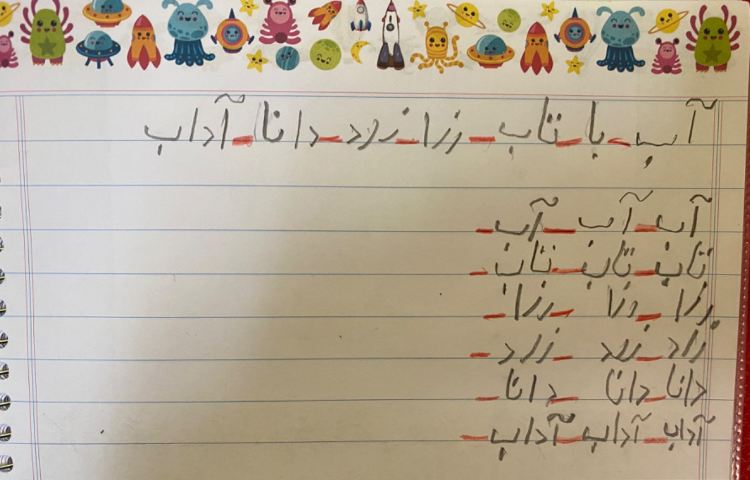 آب - با - تاب - رزا - زرد - دانا - آداب
آب - آب - آب -
تاب - تاب - تاب -
رزا - رزا - رزا -
زرد - زرد - زرد -
دانا - دانا - دانا -
آداب - آداب - آداب -